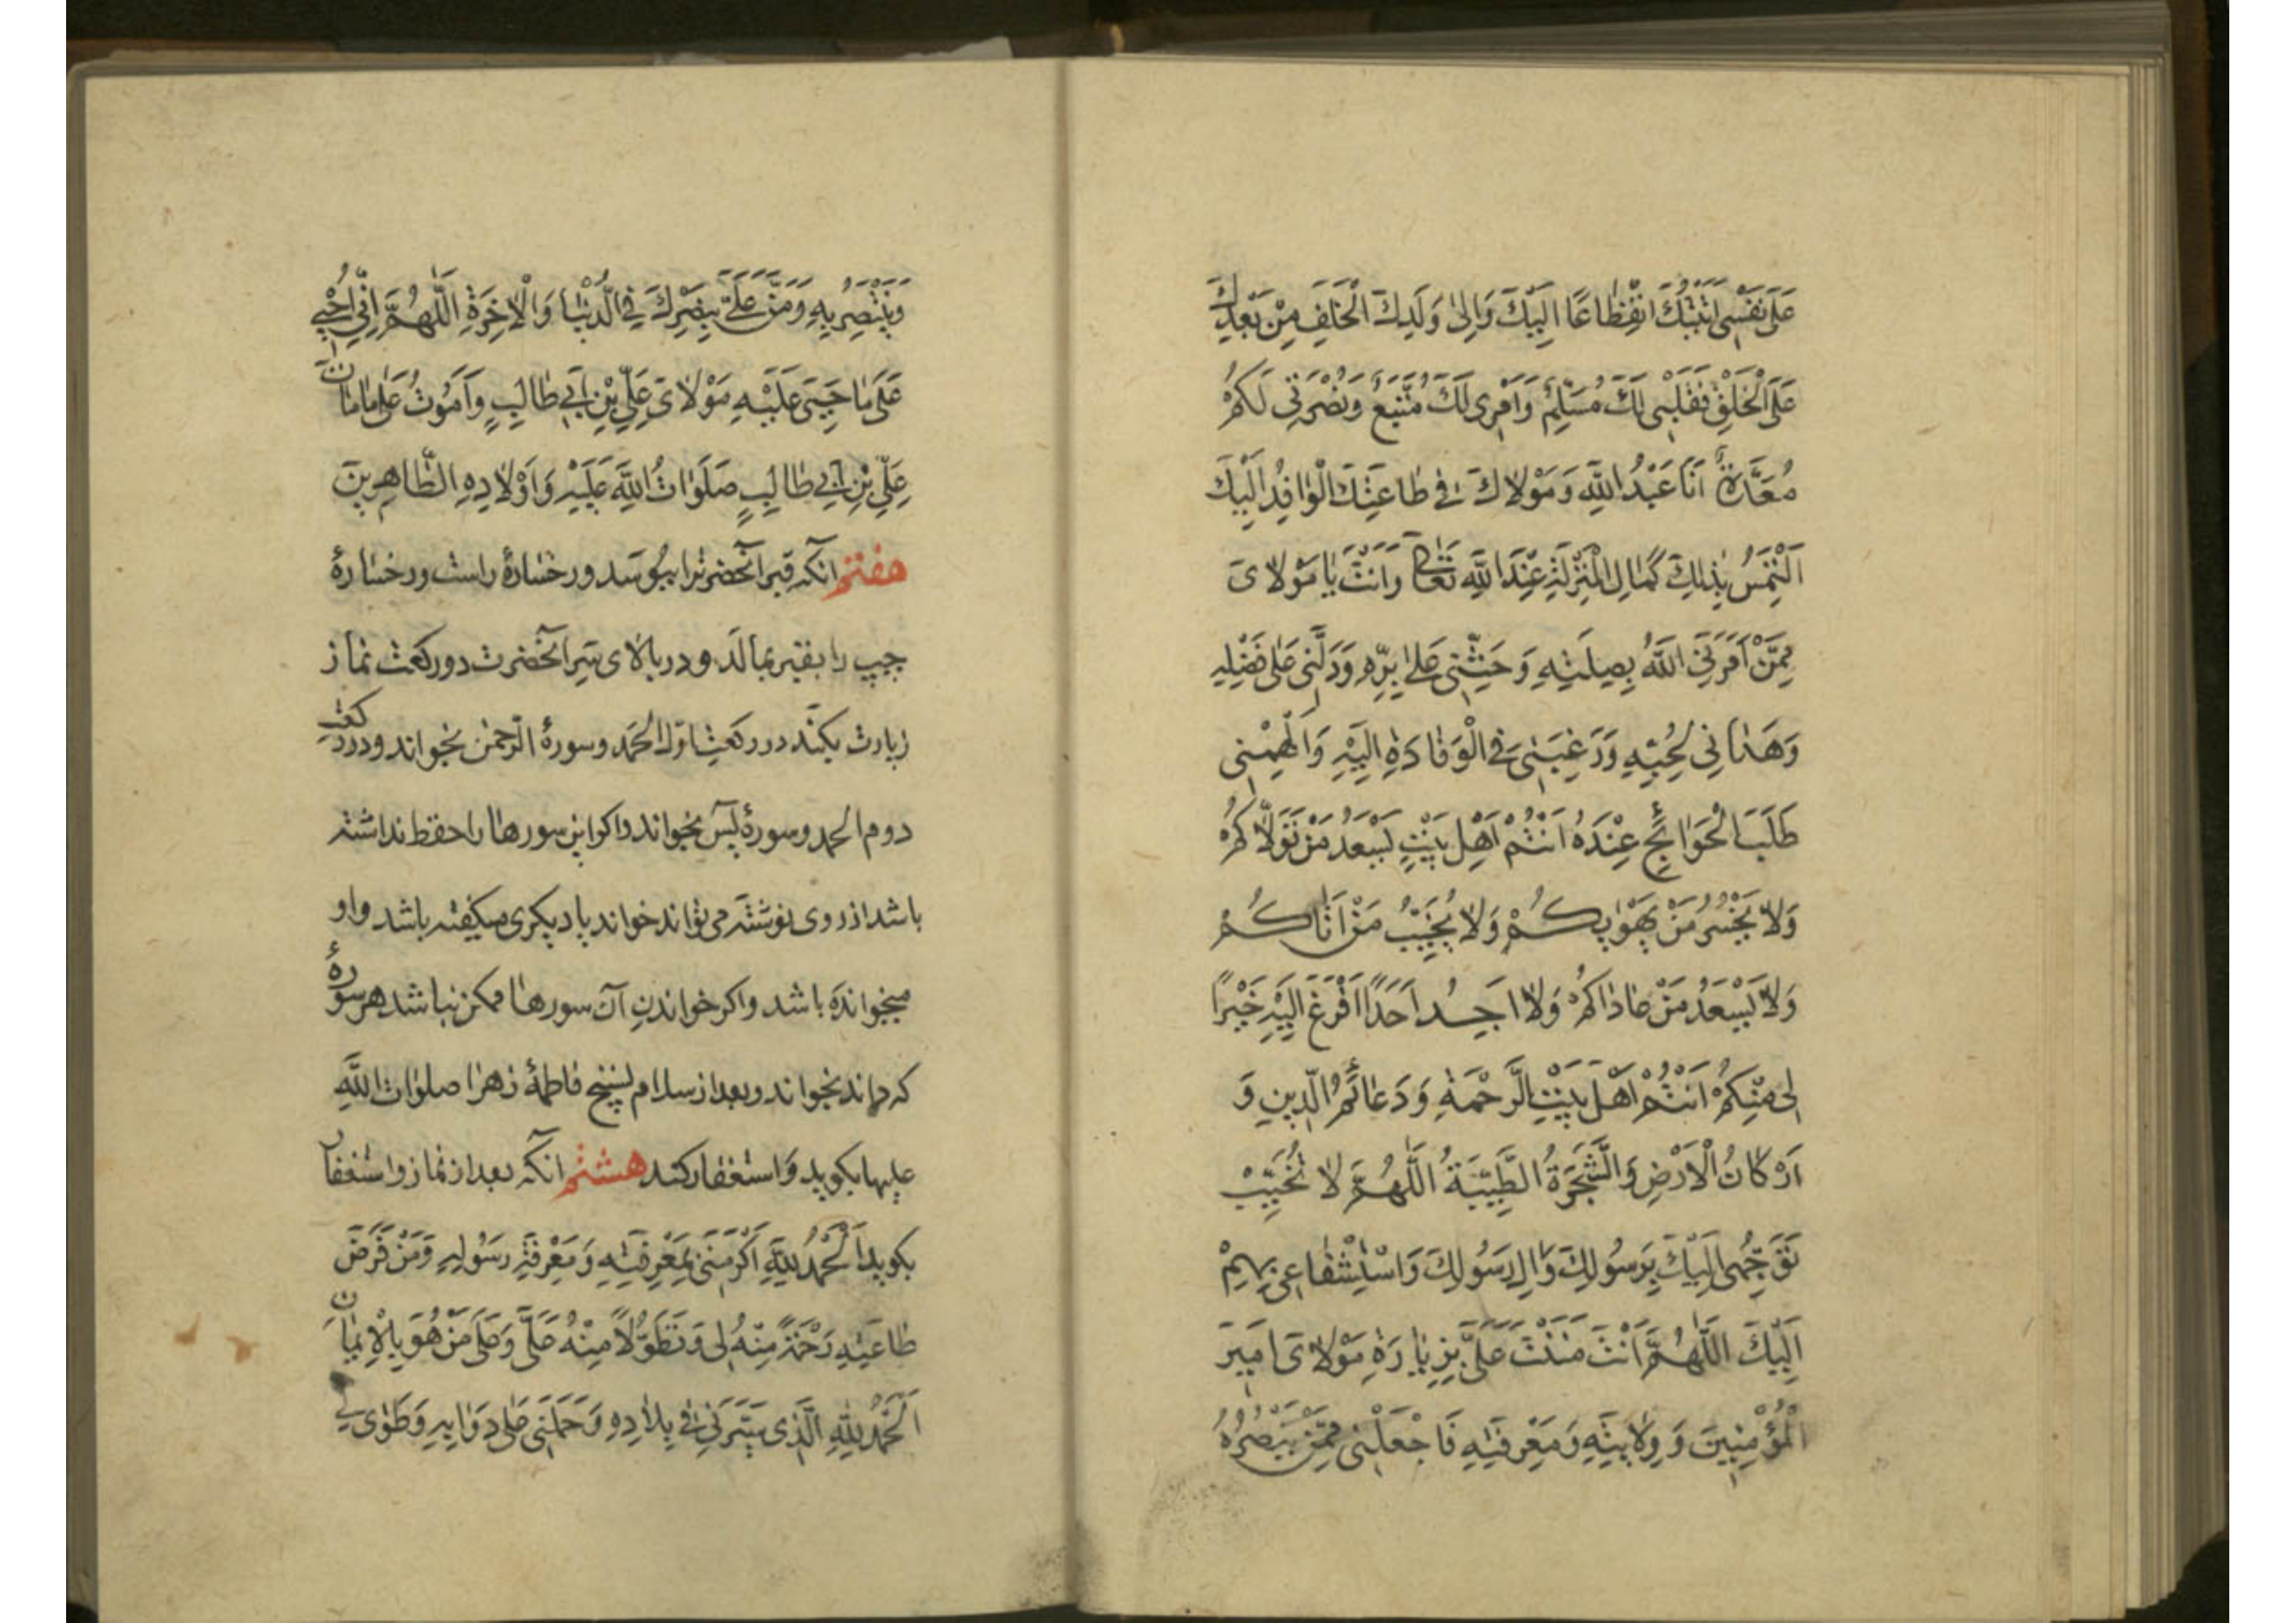 عَلَى نَفْسِي اَتَيْتُكَ انْقِطَاعًا اِلَيْكَ وَاِلٰى وَلَدِكَ الْخَلَفِ مِنْ بَعْدِكَ
عَلَى الْخَلْقِ فَقَلْبِي لَكَ مُسَلِّمٌ وَاَمْرِي لَكَ مُتَّبِعٌ وَنُصْرَتِي لَكُمْ
مُعَدَّةٌ اَنَا عَبْدُ اللّٰهِ وَمَوْلَاكَ فِي طَاعَتِكَ الْوَافِدُ اِلَيْكَ
اَلْتَمِسُ بِذٰلِكَ كَمَالَ الْمَنْزِلَةِ عِنْدَ اللّٰهِ تَعَالٰى وَاَنْتَ يَا مَوْلَايَ
مِمَّنْ اَمَرَنِيَ اللّٰهُ بِصِلَتِهِ وَحَثَّنِي عَلٰى بِرِّهِ وَدَلَّنِي عَلٰى فَضْلِهِ
وَهَدَانِي لِحُبِّهِ وَرَغَّبَنِي فِي الْوِفَادَةِ اِلَيْهِ وَاَلْهَمَنِي
طَلَبَ الْحَوَائِجِ عِنْدَهُ اَنْتُمْ اَهْلُ بَيْتٍ يَسْعَدُ مَنْ تَوَلَّاكُمْ
وَلَا يَخْسَرُ مَنْ يَهْوَاكُمْ وَلَا يَخِيْبُ مَنْ اَتَاكُمْ
وَلَا يَسْعَدُ مَنْ عَادَاكُمْ وَلَا اَجِدُ اَحَدًا اَفْزَعُ اِلَيْهِ خَيْرًا
لِي مِنْكُمْ اَنْتُمْ اَهْلُ بَيْتِ الرَّحْمَةِ وَدَعَائِمُ الدِّينِ وَ
اَرْكَانُ الْاَرْضِ وَالشَّجَرَةُ الطَّيِّبَةُ اَللّٰهُمَّ لَا تُخَيِّبْ
تَوَجُّهِي اِلَيْكَ بِرَسُولِكَ وَاٰلِ رَسُولِكَ وَاسْتِشْفَاعِي بِهِمْ
اِلَيْكَ اَللّٰهُمَّ اَنْتَ مَنَنْتَ عَلَيَّ بِزِيَارَةِ مَوْلَايَ اَمِيرِ
الْمُؤْمِنِينَ وَوِلَايَتِهِ وَمَعْرِفَتِهِ فَاجْعَلْنِي مِمَّنْ يَنْصُرُهُ
وَيَنْتَصِرُ بِهِ وَمُنَّ عَلَيَّ بِنَصْرِكَ فِي الدُّنْيَا وَالْاٰخِرَةِ اَللّٰهُمَّ اِنِّي اُحْيِي
عَلٰى مَا حَيِيَ عَلَيْهِ مَوْلَايَ عَلِيِّ بْنِ اَبِي طَالِبٍ وَاَمُوتُ عَلٰى مَا مَاتَ
عَلِيِّ بْنِ اَبِي طَالِبٍ صَلَوَاتُ اللّٰهِ عَلَيْهِ وَاَوْلَادِهِ الطَّاهِرِينَ
هفتم انکه قبر آنحضرترا ببوسد و رخسارهٔ راست و رخسارهٔ
چپ را بقبر بمالد و در بالای سر آنحضرت دو رکعت نماز
زیارت بکند در رکعت اوّل الحمد و سورهٔ الرّحمن بخواند و در رکعت
دوم الحمد و سورهٔ یٓس بخواند و اکر این سورها را حفظ نداشته
باشد از روی نوشته می تواند خواند یا دیکری میکفته باشد و او
میخوانده باشد و اکر خواندن آن سورها ممکن نباشد هر سورهٔ
که داند بخواند و بعد از سلام تسبیح فاطمهٔ زهرا صلوات اللّٰه
علیها بکوید و استغفار کند هشتم آنکه بعد از نماز و استغفار
بکوید اَلْحَمْدُ لِلّٰهِ اَكْرَمَنِي بِمَعْرِفَتِهِ وَمَعْرِفَةِ رَسُولِهِ وَمَنْ فَرَضَ
طَاعَتِهِ رَحْمَةً مِنْهُ لِي وَتَطَوُّلًا مِنْهُ عَلَيَّ وَعَلَى مَنْ هُوَ بِالْاِيْمَانِ
اَلْحَمْدُ لِلّٰهِ الَّذِي سَيَّرَنِي فِي بِلَادِهِ وَحَمَلَنِي عَلٰى دَوَابِّهِ وَطَوٰى لِي